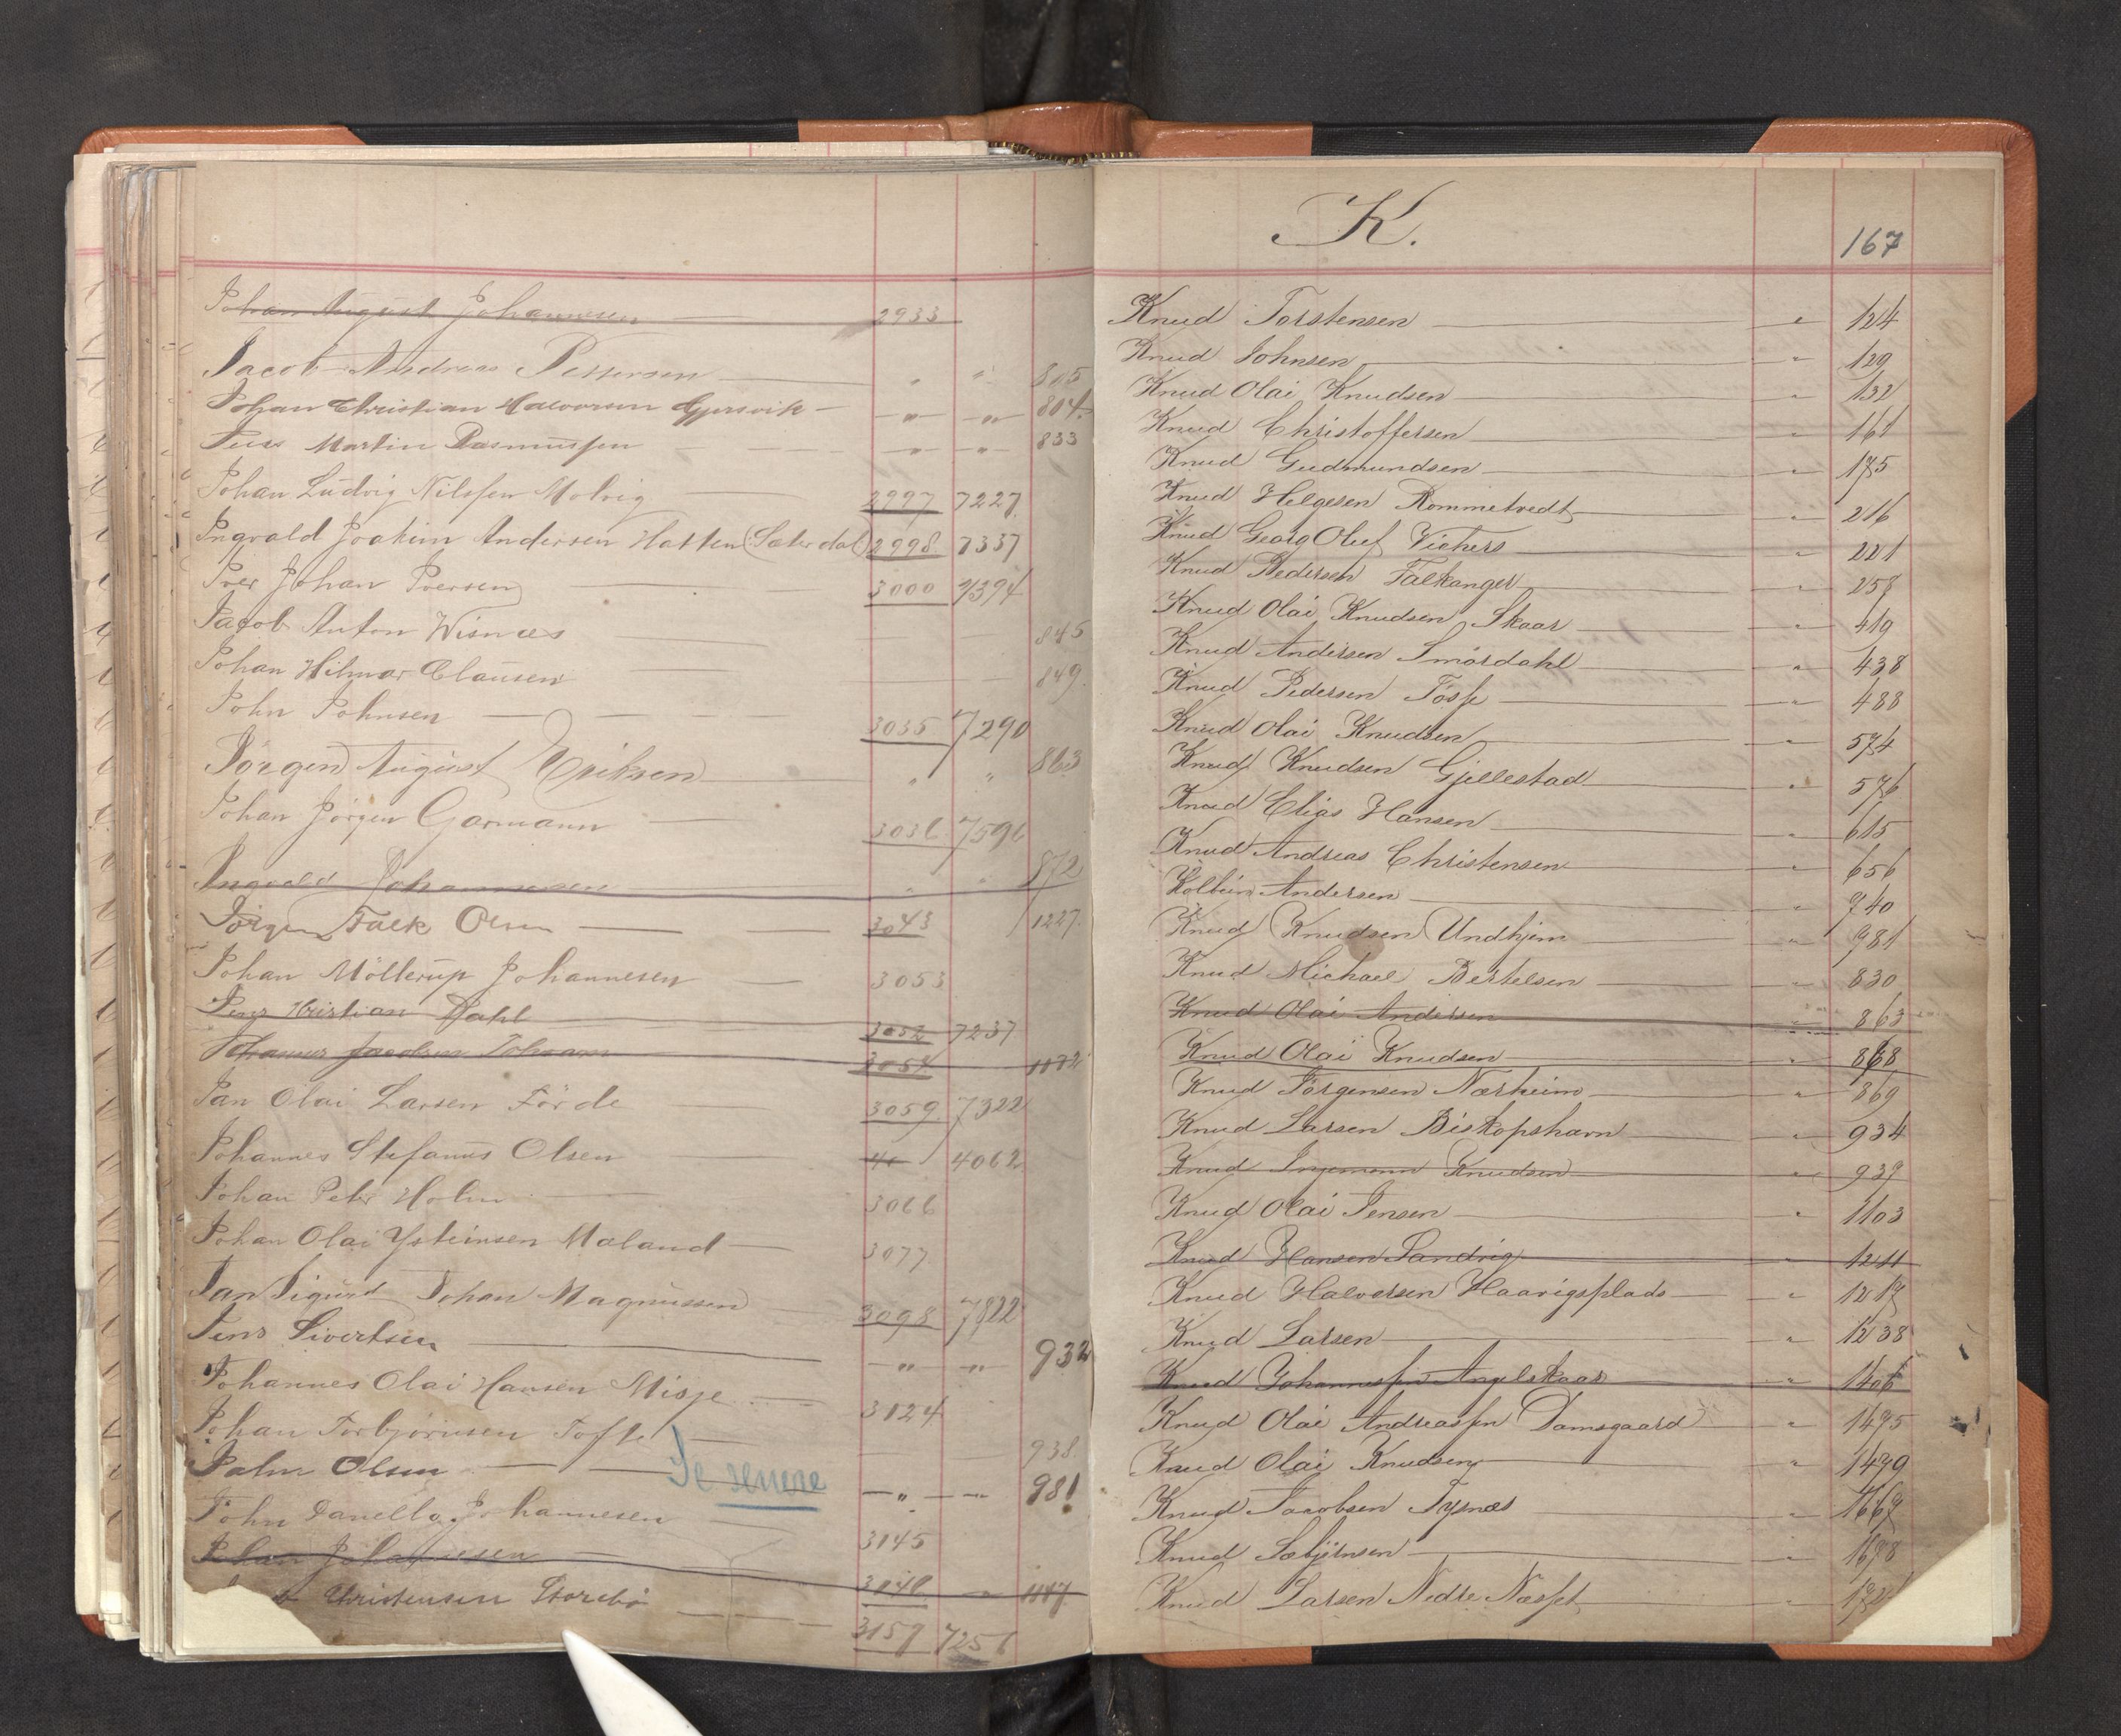 Johan August Johannesen 2933
Jacob Andreas Pettersen " " 805
Johan Christian Halvorsen Gjersvik " " 804
Jens Martin Rasmussen " " 833
Johan Ludvig Nilsen Molvig 2997 7227
Ingvald Joakim Andersen Hatten (Sæterdal) 2998 7337
Iver Johan Iversen 3000 7394
Jacob Anton Wisnæs 845
Johan Hilmar Clausen 849
John Johnsen 3035 7290
Jörgen August Eriksen " " 863
Johan Jörgen Garmann 3036 7596
Ingvald Johannesen " " 872
Jörgen Falck Olsen 3043 1227
Johan Möllerup Johannesen 3053
Jens Kristian Dahl 3052 7237
Johannes Jacobsen 3054 1172
Jan Olai Larsen Förde 3059 7322
Johannes Stefanus Olsen 4062
Johan Peter Holm 3066
Johan Olai Ysteinsen Mæland 3077
Jan Sigurd Johan Magnussen 3098 7822
Jens Sivertsen " " 932
Johannes Olai Hansen Misje 3124
Johan Torbjörnsen Tofte 938
John Olsen Se senere " " 981
John Danello Johannesen 3145
Johan Johannesen 3146 " 1147
Christensen Storebö 3157 7256
K.
167
Knud Torstensen " 124
Knud Johnsen " 129
Knud Olai Knudsen " 132
Knud Christoffersen " 161
Knud Gudmundsen " 175
Knud Helgesen Rommetvedt " 216
Knud Georg Oluf Vickers " 221
Knud Pedersen Falkanger " 257
Knud Olai Knudsen Skaar " 419
Knud Andersen Smördahl " 438
Knud Pedersen Tösse " 488
Knud Olai Knudsen " 574
Knud Knudsen Gjellestad " 576
Knud Elias Hansen " 615
Knud Andreas Christensen " 656
Kolbein Andersen " 740
Knud Knudsen Undhjem " 781
Knud Michael Bertelsen " 830
Knud Olai Andersen " 863
Knud Olai Knudsen " 868
Knud Jörgensen Nærheim " 869
Knud Larsen Biskopshavn " 934
Knud Ingemann Knudsen " 939
Knud Olai Jensen " 1103
Knud Hansen Sandvig " 1211
Knud Halvorsen Haavigsplads " 1217
Knud Larsen " 1238
Knud Johannessen Angelskaar " 1406
Knud Olai Andreassen Damsgaard " 1475
Knud Olai Knudsen " 1479
Knud Jacobsen Tysnæs 1667
Knud Sæbjörnsen " 1678
Knud Larsen Nedre Næsset "